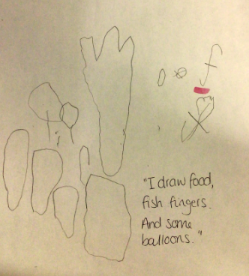 "I draw food,
fish fingers.
And some
balloons."